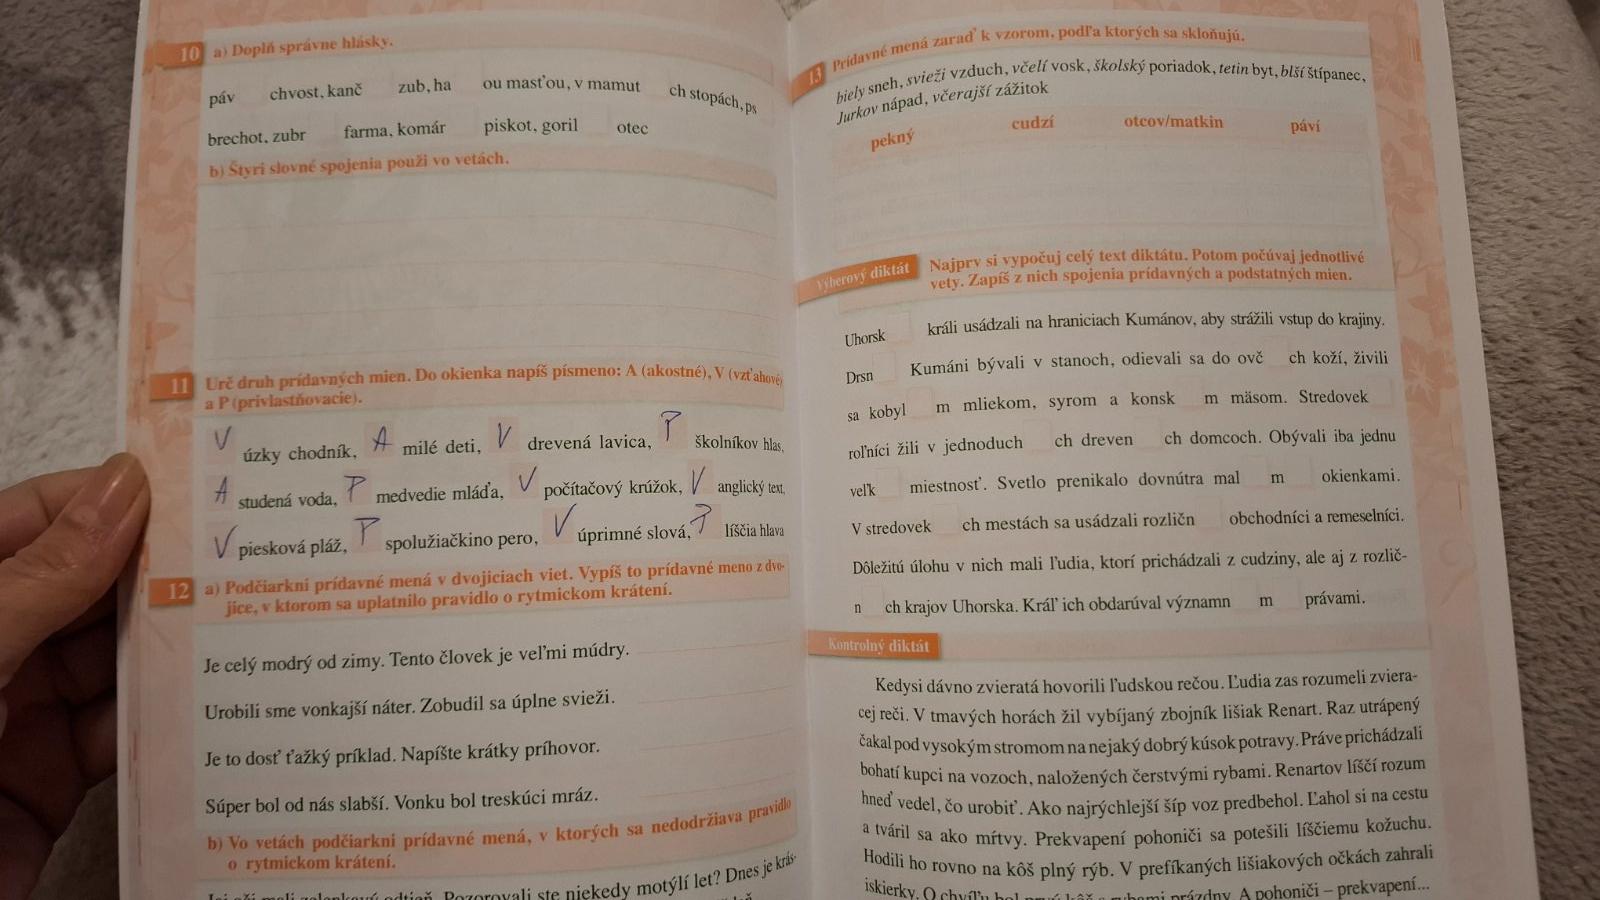 10 a) Doplň správne hlásky.
páv chvost, kanč zub, ha ou masťou, v mamut ch stopách, ps
brechot, zubr farma, komár piskot, goril otec
b) Štyri slovné spojenia použi vo vetách.
11 Urč druh prídavných mien. Do okienka napíš písmeno: A (akostné), V (vzťahové)
a P (privlastňovacie).
V úzky chodník, A milé deti, V drevená lavica, P školníkov hlas,
A studená voda, P medvedie mláďa, V počítačový krúžok, V anglický text,
V piesková pláž, P spolužiačkino pero, V úprimné slová, P líščia hlava
12 a) Podčiarkni prídavné mená v dvojiciach viet. Vypíš to prídavné meno z dvo-
jice, v ktorom sa uplatnilo pravidlo o rytmickom krátení.
Je celý modrý od zimy. Tento človek je veľmi múdry.
Urobili sme vonkajší náter. Zobudil sa úplne svieži.
Je to dosť ťažký príklad. Napíšte krátky príhovor.
Súper bol od nás slabší. Vonku bol treskúci mráz.
b) Vo vetách podčiarkni prídavné mená, v ktorých sa nedodržiava pravidlo
o rytmickom krátení.
Pozorovali ste niekedy motýlí let? Dnes je krás-
13 Prídavné mená zaraď k vzorom, podľa ktorých sa skloňujú.
biely sneh, svieži vzduch, včelí vosk, školský poriadok, tetin byt, blší štípanec,
Jurkov nápad, včerajší zážitok
pekný cudzí otcov/matkin páví
Výberový diktát
Najprv si vypočuj celý text diktátu. Potom počúvaj jednotlivé
vety. Zapíš z nich spojenia prídavných a podstatných mien.
Uhorsk králi usádzali na hraniciach Kumánov, aby strážili vstup do krajiny.
Drsn Kumáni bývali v stanoch, odievali sa do ovč ch koží, živili
sa kobyl m mliekom, syrom a konsk m mäsom. Stredovek
roľníci žili v jednoduch ch dreven ch domcoch. Obývali iba jednu
veľk miestnosť. Svetlo prenikalo dovnútra mal m okienkami.
V stredovek ch mestách sa usádzali rozličn obchodníci a remeselníci.
Dôležitú úlohu v nich mali ľudia, ktorí prichádzali z cudziny, ale aj z rozlič-
n ch krajov Uhorska. Kráľ ich obdarúval významn m právami.
Kontrolný diktát
Kedysi dávno zvieratá hovorili ľudskou rečou. Ľudia zas rozumeli zviera-
cej reči. V tmavých horách žil vybíjaný zbojník lišiak Renart. Raz utrápený
čakal pod vysokým stromom na nejaký dobrý kúsok potravy. Práve prichádzali
bohatí kupci na vozoch, naložených čerstvými rybami. Renartov líščí rozum
hneď vedel, čo urobiť. Ako najrýchlejší šíp voz predbehol. Ľahol si na cestu
a tváril sa ako mŕtvy. Prekvapení pohoniči sa potešili líščiemu kožuchu.
Hodili ho rovno na kôš plný rýb. V prefíkaných lišiakových očkách zahrali
iskierky. O chvíľu bol prvý kôš s rybami prázdny. A pohoniči – prekvapení...